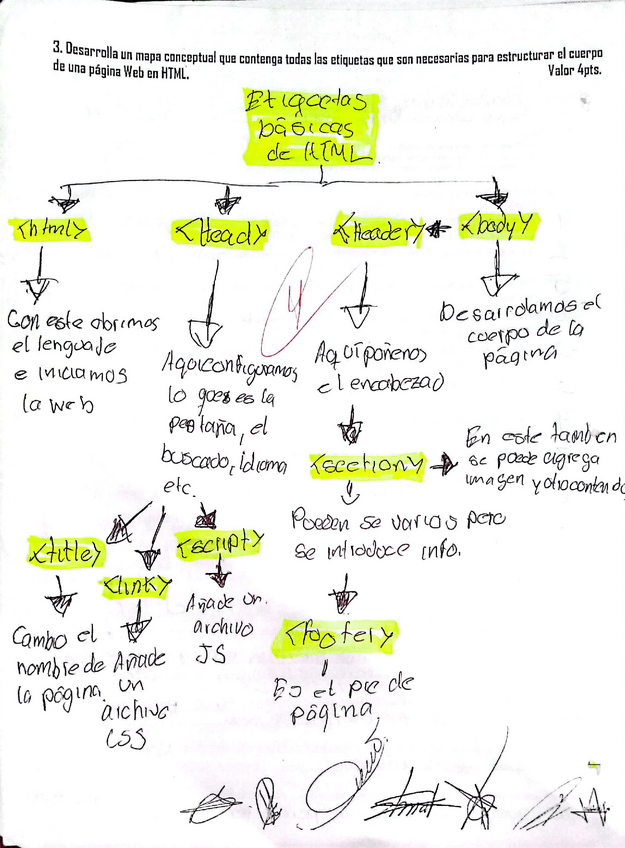 3. Desarrolla un mapa conceptual que contenga todas las etiquetas que son necesarias para estructurar el cuerpo
de una página Web en HTML.
Valor 4pts.
Etiquetas
básicas
de HTML.
<html>
<Head>
<Header>
<body>
4
Con este abrimos
el lenguaje
e iniciamos
la web
Aqui configuramos
lo que es la
pestaña, el
buscado, idioma
etc.
Aquí poñenos
el encabezad
Desarrolamos el
cuerpo de la
página
<section>
En este tamben
se puede agrega
imagen y otro contendo
Pueden se varios pero
se introduce info.
<title>
<link>
<script>
Cambo el
nombre de
la página.
Añade
un
archivo
CSS
Añade un.
archivo
JS
<footer>
Es el pie de
página